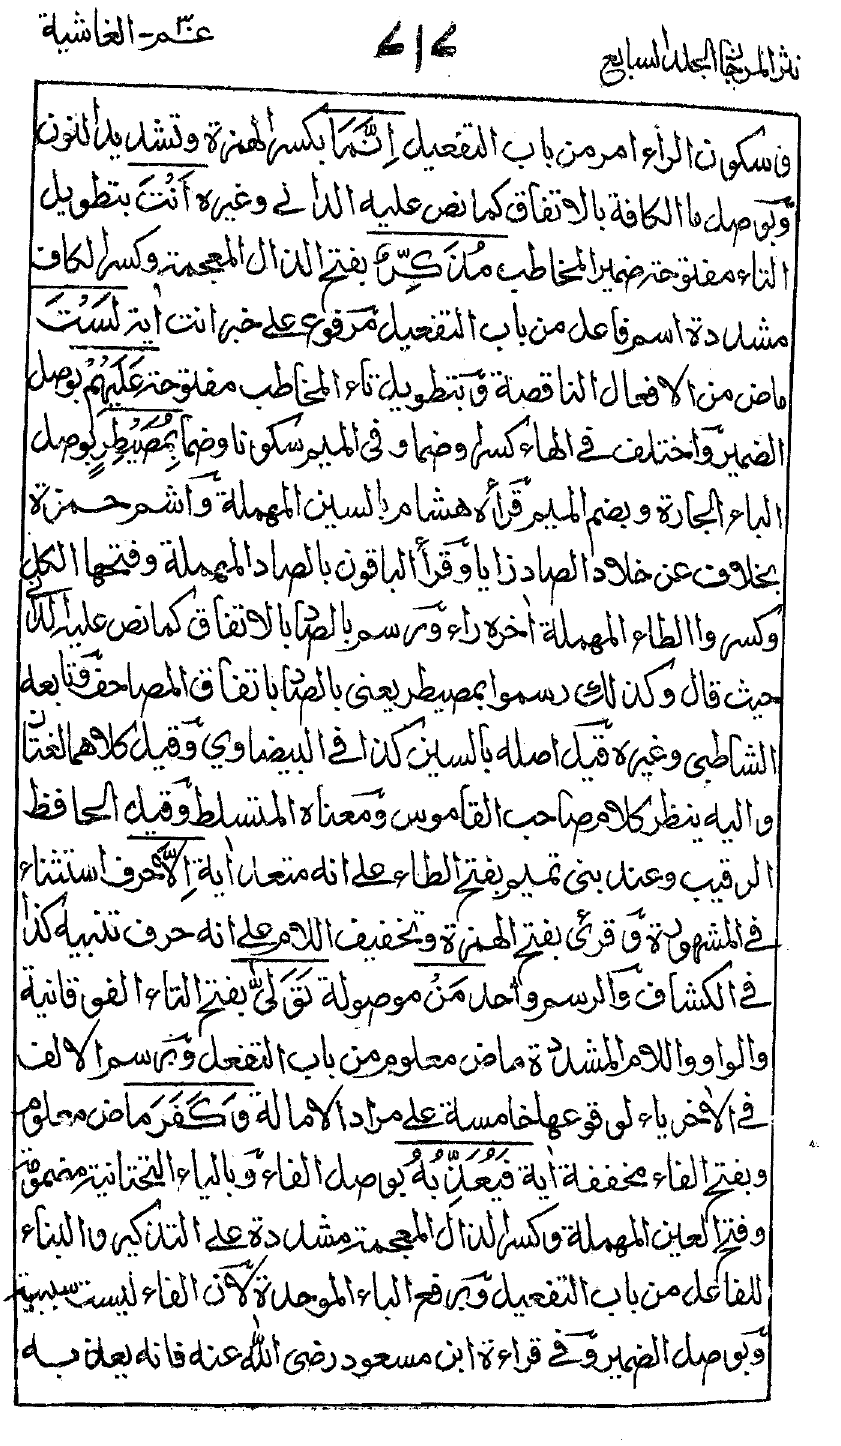 نثر المرجان المجلد السابع
٧١٧
عـم - الغاشية
و سكون الراء امر من باب التفعيل اِنَّمَا بكسر الهمزة و تشديد النون
و بوصل ما الكافة بالاتفاق كما نص عليه الداني و غيره اَنْتَ بتطويل
التاء مفتوحة ضمير المخاطب مُذَكِّرٌ بفتح الذال المعجمة و كسر الكاف
مشددة اسم فاعل من باب التفعيل مرفوع على خبر انت اية لَسْتَ
ماض من الافعال الناقصة و بتطويل تاء المخاطب مفتوحة عَلَيْهِمْ بوصل
الضمير و اختلف في الهاء كسرا و ضما و في الميم سكونا و ضما بِمُصَيْطِرٍ بوصل
الباء الجارة و بضم الميم قرأه هشام بالسين المهملة و اشم حمزة
بخلاف عن خلاد الصاد زايا و قرأ الباقون بالصاد المهملة و فتحها الكل
و كسروا الطاء المهملة اخره راء و برسم بالصاد بالاتفاق كما نص عليه الداني
حيث قال و كذلك رسموا بمصيطر يعني بالصاد باتفاق المصاحف و تابعه
الشاطبي و غيره قيل اصله بالسين كذا في البيضاوي و قيل كلاهما لغتان
و اليه ينظر كلام صاحب القاموس و معناه المتسلط و قيل الحافظ
الرقيب و عند بني تميم بفتح الطاء على انه متعد اية اِلَّا حرف استثناء
في المشهورة و قرئ بفتح الهمزة و تخفيف اللام على انه حرف تنبيه كذا
في الكشاف و الرسم واحد مَنْ موصولة تَوَلّٰى بفتح التاء الفوقانية
و الواو و اللام المشددة ماض معلوم من باب التفعل و برسم الالف
في الاخر ياء لوقوعها خامسة على مراد الامالة وَ كَفَرَ ماض معلوم
و بفتح الفاء مخففة اية فَيُعَذِّبُهُ بوصل الفاء و بالياء التحتانية مضمومة
و فتح العين المهملة و كسر الذال المعجمة مشددة على التذكير و البناء
للفاعل من باب التفعيل و برفع الباء الموحدة لان الفاء ليست سببية
و بوصل الضمير و في قراءة ابن مسعود رضى الله عنه فانه يعذبه